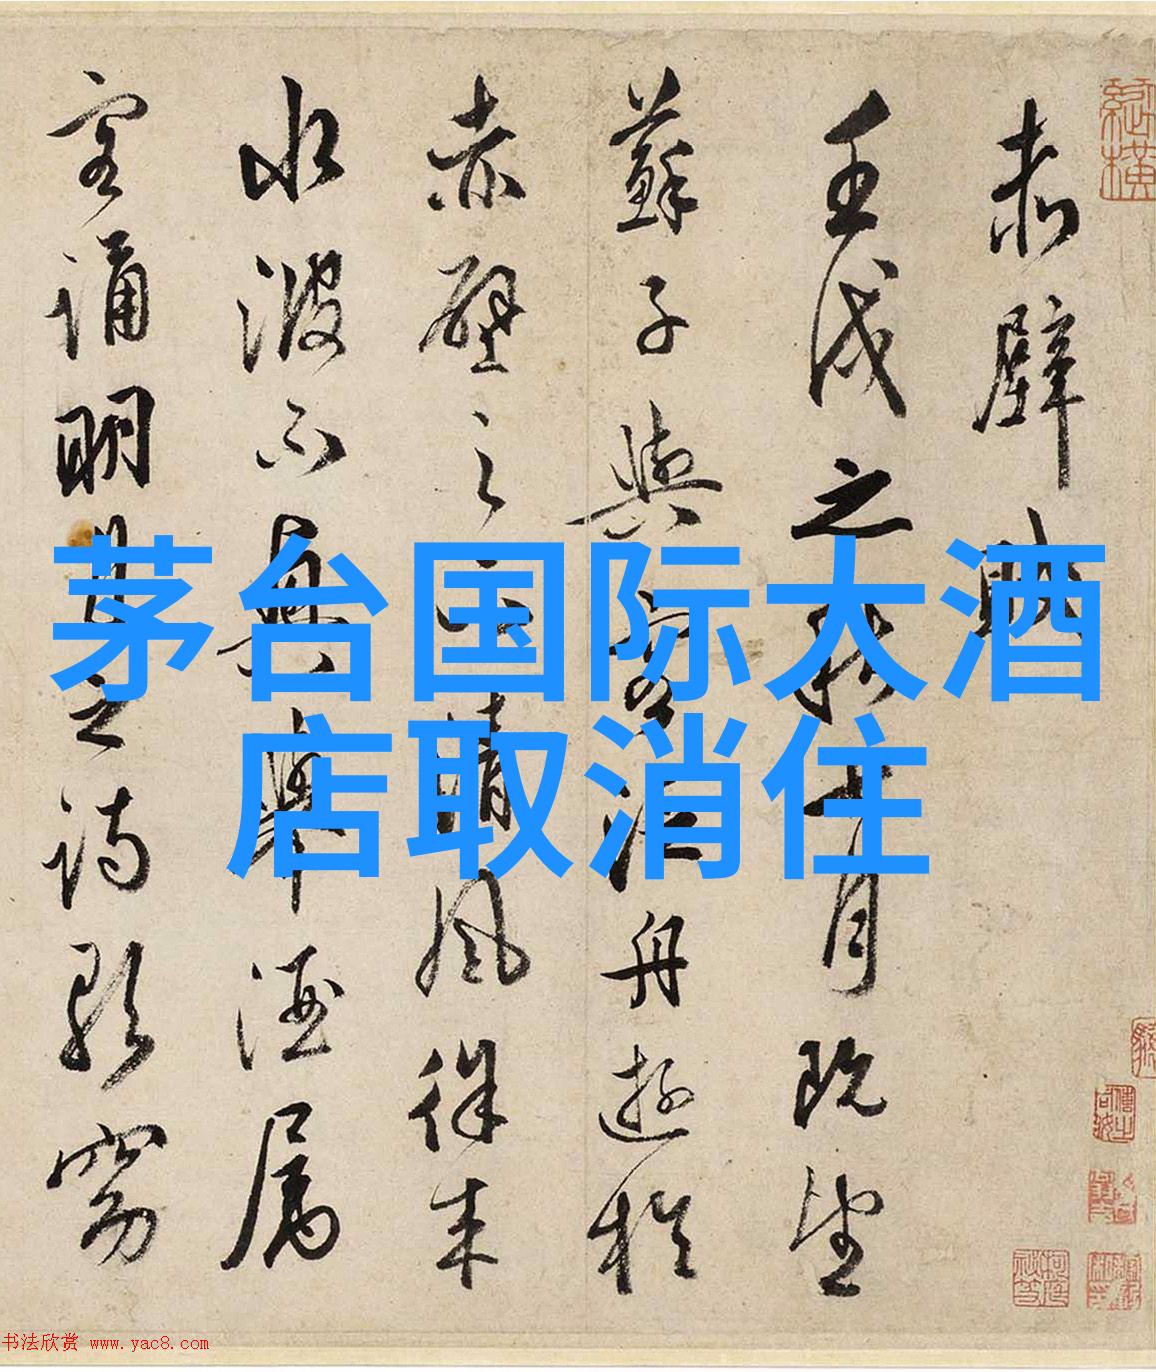 赤壁賦
壬戌之秋七月既望
蘇子與客泛舟遊於
赤壁之下清風徐来
水波不興舉酒属
客誦明月之詩歌窈
茅台国际大酒
店取消住
书法欣赏 www.yac8.com